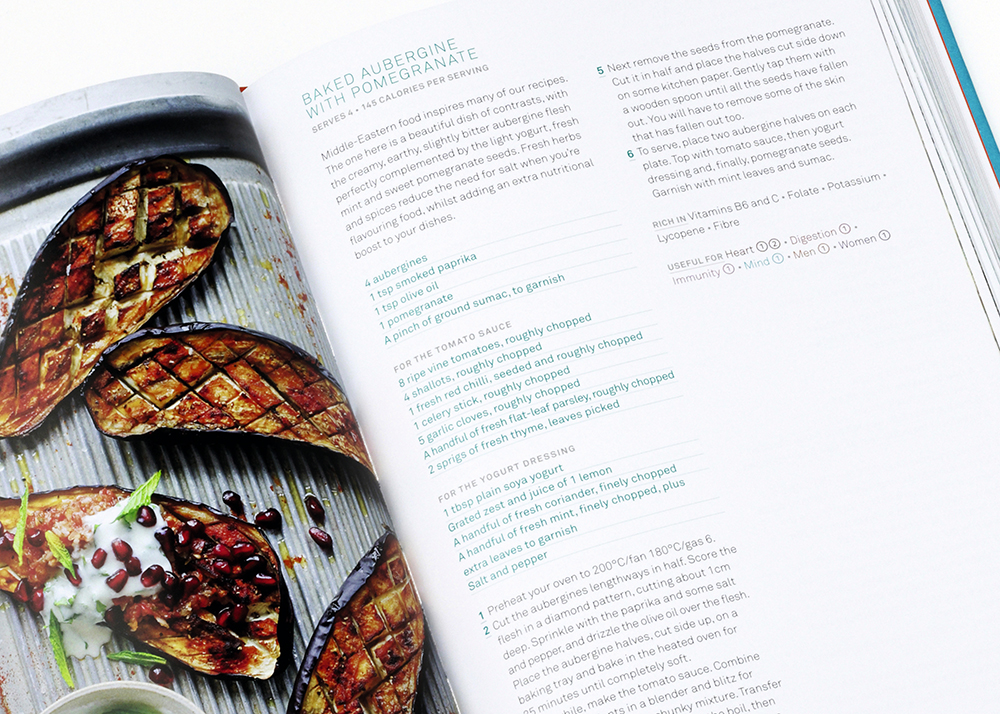 BAKED AUBERGINE
WITH POMEGRANATE
SERVES 4 • 145 CALORIES PER SERVING
Middle-Eastern food inspires many of our recipes.
The one here is a beautiful dish of contrasts, with
the creamy, earthy, slightly bitter aubergine flesh
perfectly complemented by the light yogurt, fresh
mint and sweet pomegranate seeds. Fresh herbs
and spices reduce the need for salt when you're
flavouring food, whilst adding an extra nutritional
boost to your dishes.
4 aubergines
1 tsp smoked paprika
1 tsp olive oil
1 pomegranate
A pinch of ground sumac, to garnish
FOR THE TOMATO SAUCE
8 ripe vine tomatoes, roughly chopped
4 shallots, roughly chopped
1 fresh red chilli, seeded and roughly chopped
1 celery stick, roughly chopped
5 garlic cloves, roughly chopped
A handful of fresh flat-leaf parsley, roughly chopped
2 sprigs of fresh thyme, leaves picked
FOR THE YOGURT DRESSING
1 tbsp plain soya yogurt
Grated zest and juice of 1 lemon
A handful of fresh coriander, finely chopped
A handful of fresh mint, finely chopped, plus
extra leaves to garnish
Salt and pepper
1 Preheat your oven to 200°C/fan 180°C/gas 6.
2 Cut the aubergines lengthways in half. Score the
flesh in a diamond pattern, cutting about 1cm
deep. Sprinkle with the paprika and some salt
and pepper, and drizzle the olive oil over the flesh.
Place the aubergine halves, cut side up, on a
baking tray and bake in the heated oven for
25 minutes until completely soft.
make the tomato sauce. Combine
in a blender and blitz for
chunky mixture. Transfer
boil, then
5 Next remove the seeds from the pomegranate.
Cut it in half and place the halves cut side down
on some kitchen paper. Gently tap them with
a wooden spoon until all the seeds have fallen
out. You will have to remove some of the skin
that has fallen out too.
6 To serve, place two aubergine halves on each
plate. Top with tomato sauce, then yogurt
dressing and, finally, pomegranate seeds.
Garnish with mint leaves and sumac.
RICH IN Vitamins B6 and C • Folate • Potassium •
Lycopene • Fibre
USEFUL FOR Heart ① ② • Digestion ① •
Immunity ① • Mind ① • Men ① • Women ①